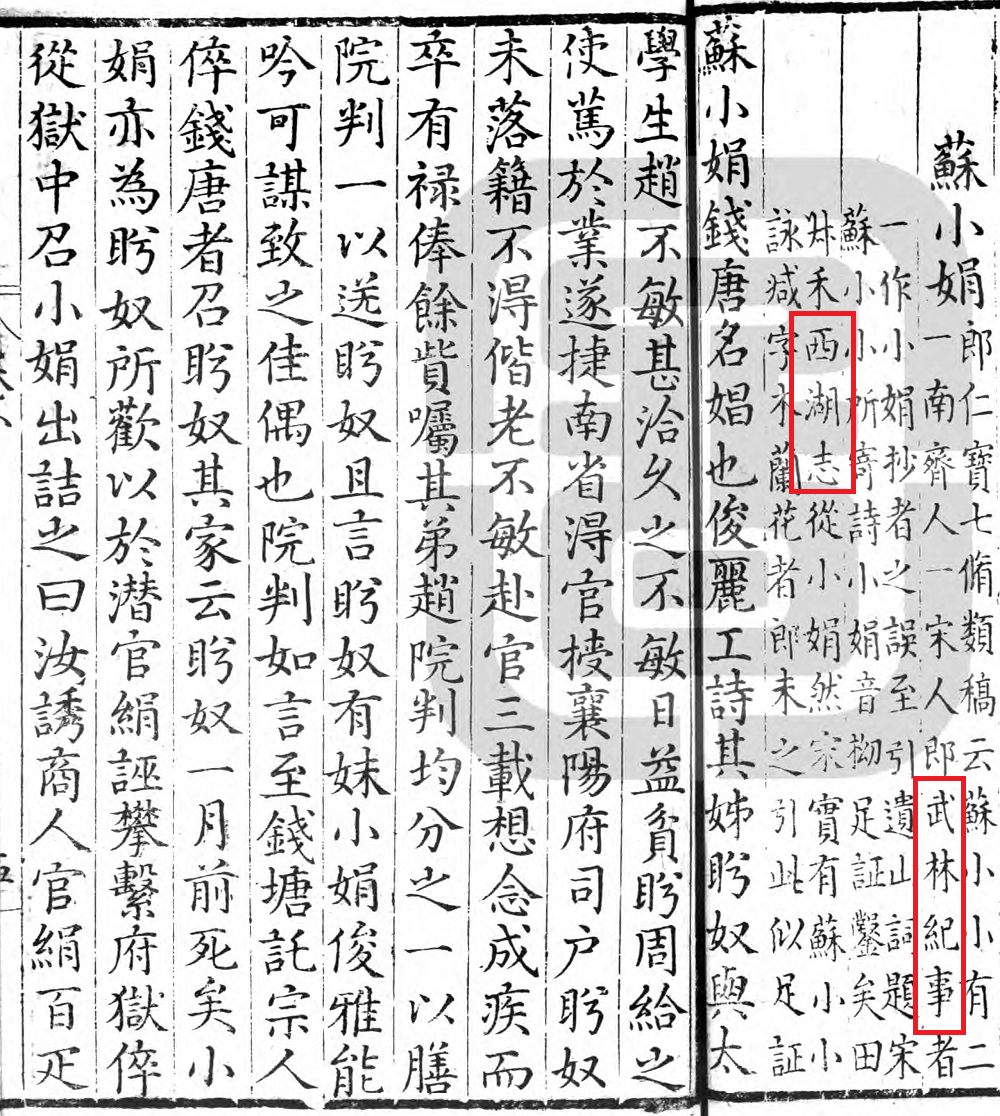 蘇小娟
郎仁寶七脩類稿云蘇小小有二
一南齊人一宋人郎武林紀事者
一作小娟抄者之誤至引遺山詞題宋
蘇小小所寄詩小娟音拗足証鑿矣田
叔禾西湖志從小娟然宋實有蘇小小
詠減字木蘭花者郎未之引此似足証
蘇小娟錢唐名娼也俊麗工詩其姊盻奴與太
學生趙不敏甚洽久之不敏日益貧盻周給之
使篤於業遂捷南省淂官授襄陽府司户盻奴
未落籍不淂偕老不敏赴官三載想念成疾而
卒有禄俸餘貲囑其弟趙院判均分之一以膳
院判一以送盻奴且言盻奴有妹小娟俊雅能
吟可謀致之佳偶也院判如言至錢塘託宗人
倅錢唐者召盻奴其家云盻奴一月前死矣小
娟亦為盻奴所歡以於潜官絹誣攀繫府獄倅
從獄中召小娟出詰之曰汝誘商人官絹百疋